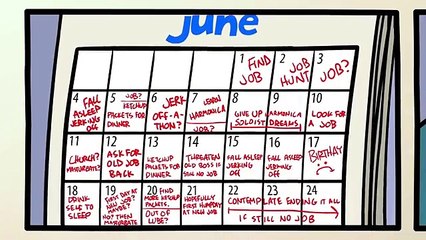 june
1 FIND JOB
2 JOB HUNT
3 JOB?
4 FALL ASLEEP JERKING OFF
5 JOB? KETCHUP PACKETS FOR DINNER
6 JERK OFF-A-THON?
7 LEARN HARMONICA JOB?
8 9 GIVE UP HARMONICA SOLOIST DREAMS
10 LOOK FOR A JOB
11 CHURCH? MASTURBATE?
12 ASK FOR OLD JOB BACK
13 KETCHUP PACKETS FOR DINNER
14 THREATEN OLD BOSS IF STILL NO JOB
15 FALL ASLEEP JERKING OFF
16 FALL ASLEEP JERKING OFF
17 BIRTHDAY
18 DRINK SELF TO SLEEP
19 FIRST DAY AT NEW JOB? MAYBE? NO? THEN MASTURBATE
20 FIND MORE KETCHUP PACKETS. OUT OF LUBE?
21 HOPEFULLY FIRST HUMPDAY AT NEW JOB
22 23 24 CONTEMPLATE ENDING IT ALL IF STILL NO JOB